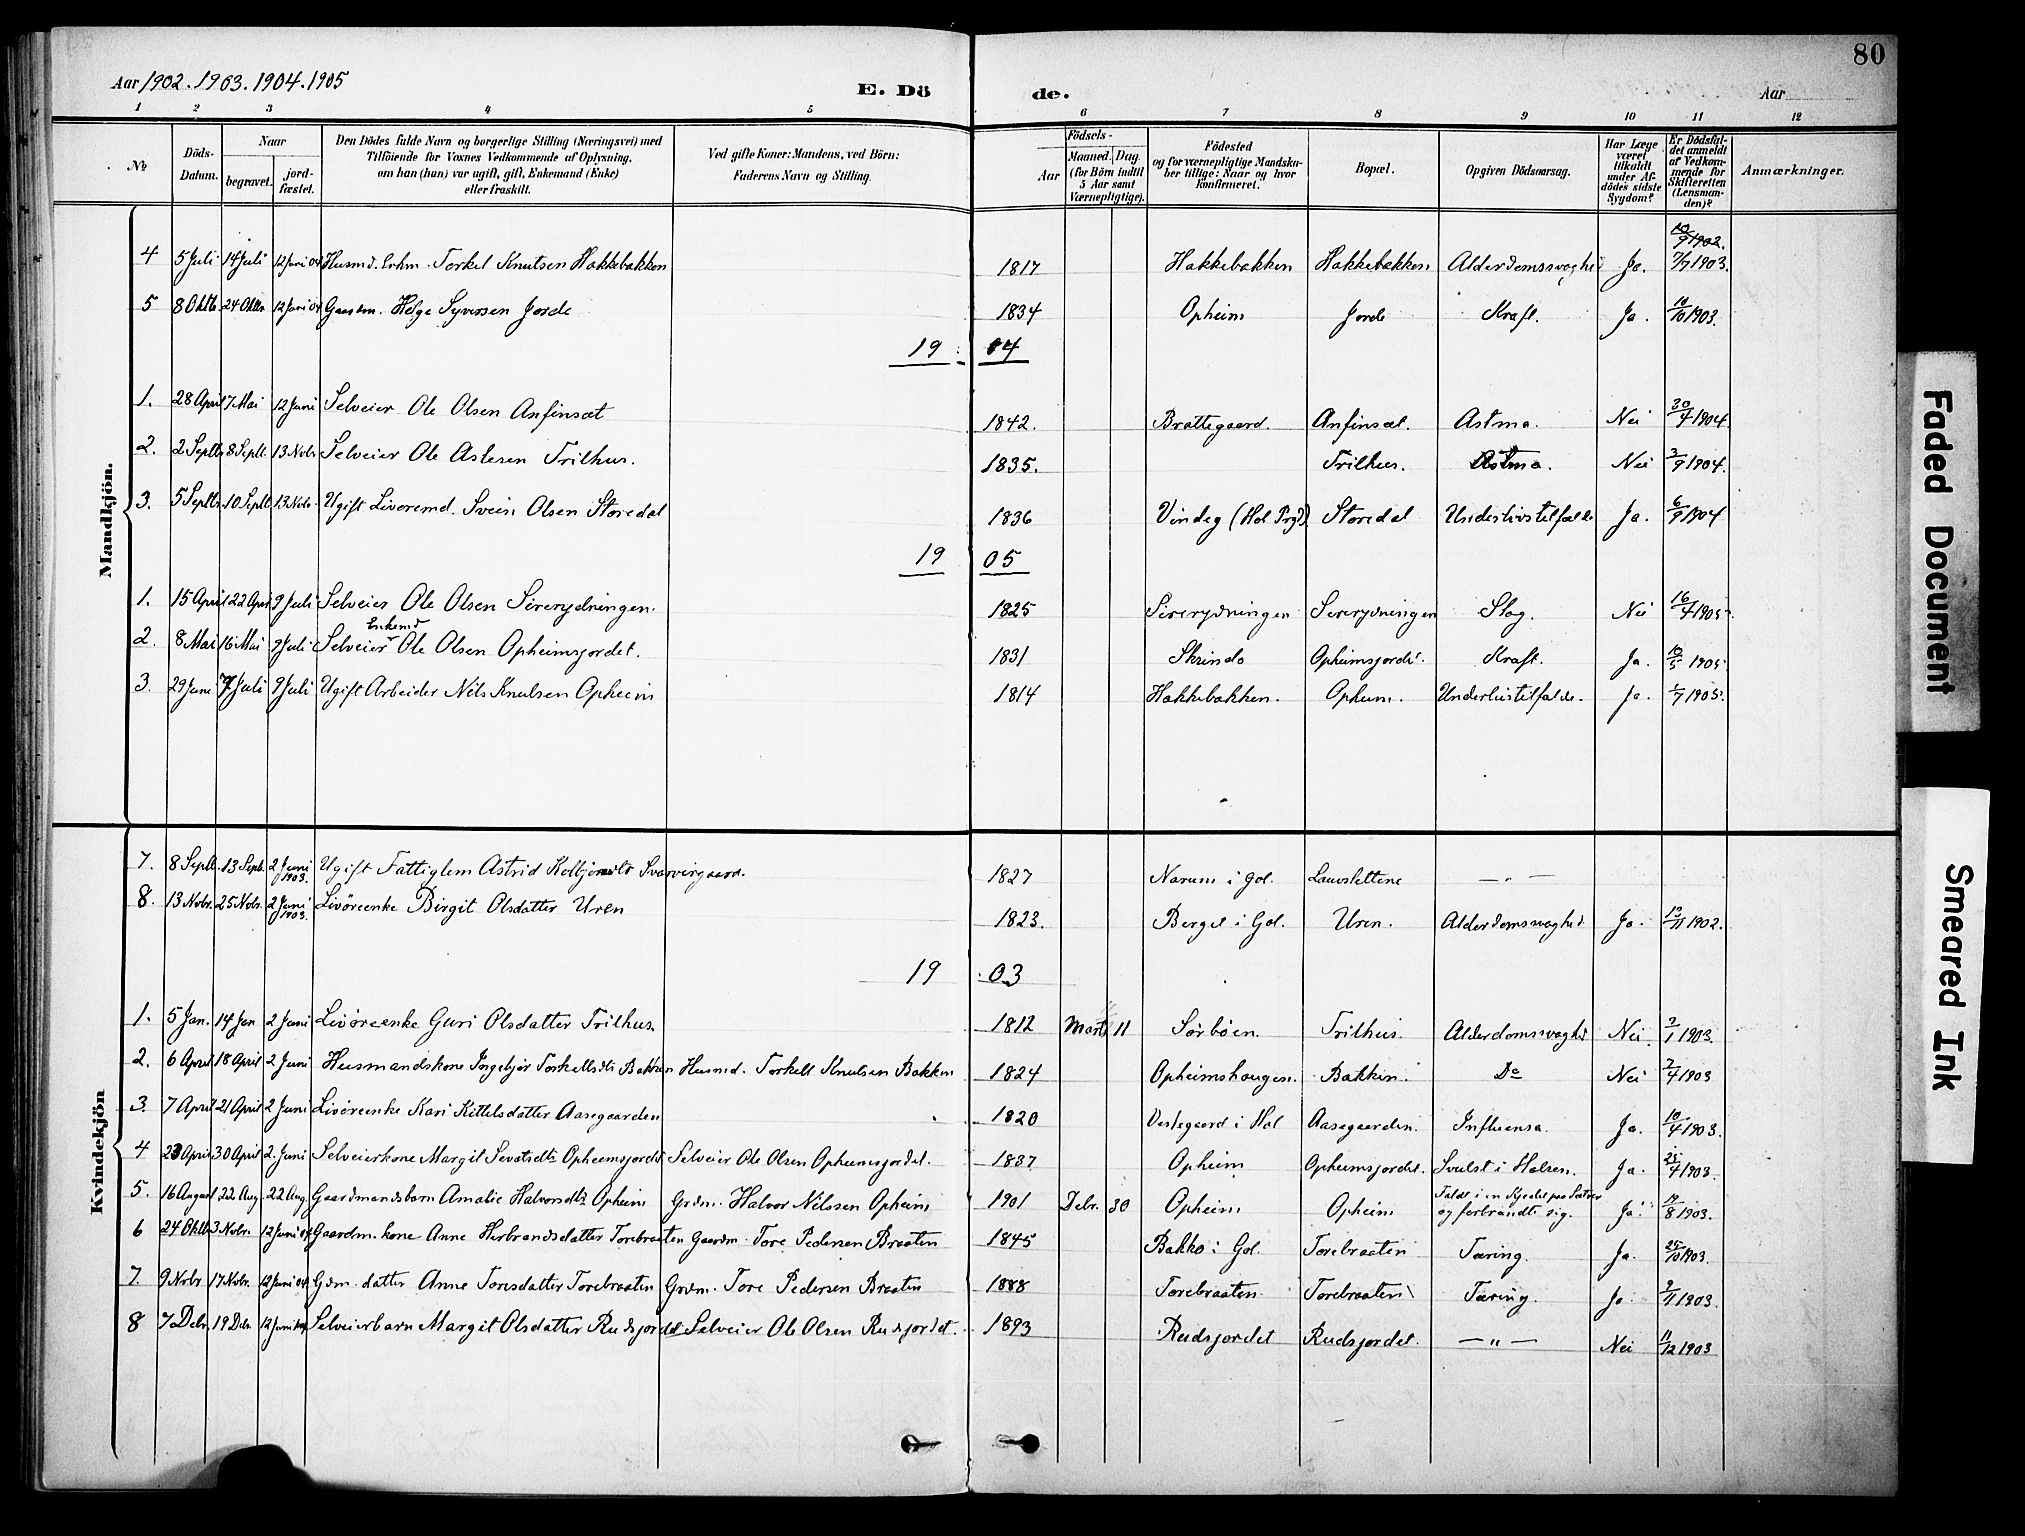 80
Aar 1902. 1903. 1904. 1905
E. Dö de.
Aar
1 2 3 4 5 6 7 8 9 10 11 12
№
Döds-Datum.
Naar
begravet.
jord-fæstet.
Den Dödes fulde Navn og borgerlige Stilling (Næringsvei) med
Tilföiende for Voxnes Vedkommende af Oplysning,
om han (hun) var ugift, gift, Enkemand (Enke)
eller fraskilt.
Ved gifte Koner: Mandens, ved Börn:
Faderens Navn og Stilling.
Födsels-
Aar
Maaned. Dag.
(for Börn indtil
5 Aar samt
Værnepligtige).
Födested
og for værnepligtige Mandska-
ber tillige: Naar og hvor
konfirmeret.
Bopæl.
Opgiven Dödsaarsag.
Har Læge
været
tilkaldt
under Af-
dödes sidste
Sygdom?
Er Dödsfal-
det anmeldt
af Vedkom-
mende for
Skifteretten
(Lensman-
den)?
Anmærkninger.
Mandkjön.
4 5 Juli 14 Juli 12 Juni 04 Husmd. Enkm. Torkel Knutsen Hakkebakken 1817 Hakkebakken Hakkebakken Alderdomssvaghed Ja. 7/7 1903.
5 8 Oktb. 24 Oktbr 12 Juni 04 Gaardm. Helge Syversen Jorde 1834 Opheim Jorde Kræft. Ja. 10/10 1903.
19 04
1. 28 April 7 Mai 12 Juni Selveier Ole Olsen Anfinsæt 1842. Brattegaard. Anfinsæt. Astma. Nei 30/4 1904
2. 2 Septb. 8 Septb. 13 Nobr Selveier Ole Aslesen Trilhus. 1835. Trilhus. Astma. Nei 3/9 1904.
3. 5 Septb. 10 Septb. 13 Nobr. Ugift Livøremd. Svein Olsen Storedal 1836 Vindeg (Hol Prgd) Storedal Underlivstilfælde Ja. 6/9 1904
19 05
1. 15 April 22 April 9 Juli Selveier Ole Olsen Sirerydningen. 1825 Sirerydningen Sirerydningen Slag. Nei 16/4 1905.
Enkemd
2. 8 Mai 16 Mai 9 Juli Selveier Ole Olsen Opheimsjordet. 1831 Skrindo Opheimsjordet. Kræft. Ja. 10/5 1905
3. 29 Juni 7 Juli 9 Juli Ugift Arbeider Nils Knutsen Opheim 1814 Hakkebakken. Opheim. Underlivstilfælde. Ja. 1/7 1905.
Kvindekjön
7. 8 Septb. 13 Septb. 2 Juni 1903. Ugift Fattiglem Astrid Kolbjørnsdtr Svarvirgaard. 1827 Narum i Gol. Lauvslettene — „ —
8. 13 Nobr. 25 Nobr. 2 Juni 1903. Livøreenke Birgit Olsdatter Uren 1823. Berget i Gol. Uren. Alderdomssvaghed Ja. 13/11 1902.
19 03
1. 5 Jan. 14 Jan 2 Juni Livøreenke Guri Olsdatter Trilhus. 1812 Marts 11 Sørbøen. Trilhus. Alderdomssvaghed Nei. 2/1 1903.
2. 6 April 18 April 2 Juni Husmandskone Ingebjør Torkelsdtr Bakken Husmd. Torkell Knutsen Bakken 1824 Opheimshougen. Bakken. Do Nei 7/4 1903
3. 7 April 21 April 2 Juni Livøreenke Kari Kittelsdatter Aasegaarden 1820 Vestegaard i Hol Aasegaarden. Influensa. Ja. 10/4 1903.
4 23 April 30 April 2. Juni Selveierkone Margit Sevatsdtr Opheimsjordet Selveier Ole Olsen Opheimsjordet. 1837 Opheim Opheimsjordet. Svulst i Halsen. Ja. 21/4 1903.
5. 16 August 22 Aug. 22 Aug. Gaardmandsbarn Amalie Halvorsdtr Opheim Grdm. Halvor Nilssen Opheim 1901 Debr. 30 Opheim Opheim Faldt i en Kjedel paa Sæter og forbrændte sig. Ja. 17/8 1903.
6 24 Oktb. 3 Nobr. 12 Juni 04 Gaardm. kone Anne Herbrandsdatter Torebraaten Gaardm. Tore Pedersen Braaten 1845 Bakko i Gol. Torebraaten Tæring. Ja. 25/10 1903.
7. 9 Nobr 17 Nobr. 12 Juni 04 Grdm. datter Anne Toresdatter Torebraaten Grdm. Tore Pedersen Braaten 1888 Torebraaten. Torebraaten Tæring. Ja 9/11 1903.
8 7 Debr. 19 Debr. 12 Juni 04 Selveierbarn Margit Olsdatter Rudsjordet Selveier Ole Olsen Rudsjordet. 1893 Rudsjordet Rudsjordet. — „ — Nei 11/12 1903
Faded Document
Smeared Ink